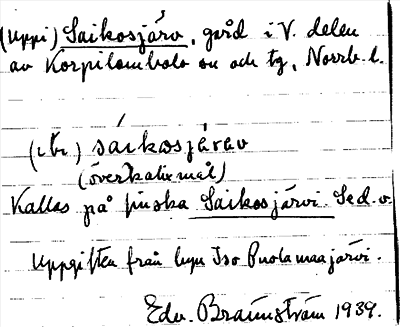 (Uppi) Saikosjärv, gård i V. delen
av Korpilombolo sn och tg, Norrb. l.
(utt.) sáikosjä́rav
(överkalixmål)
Kallas på finska Saikosjärvi. Se d. o.
Uppgiften från byn Iso Puolamaajärvi.
Edv. Brännström 1939.